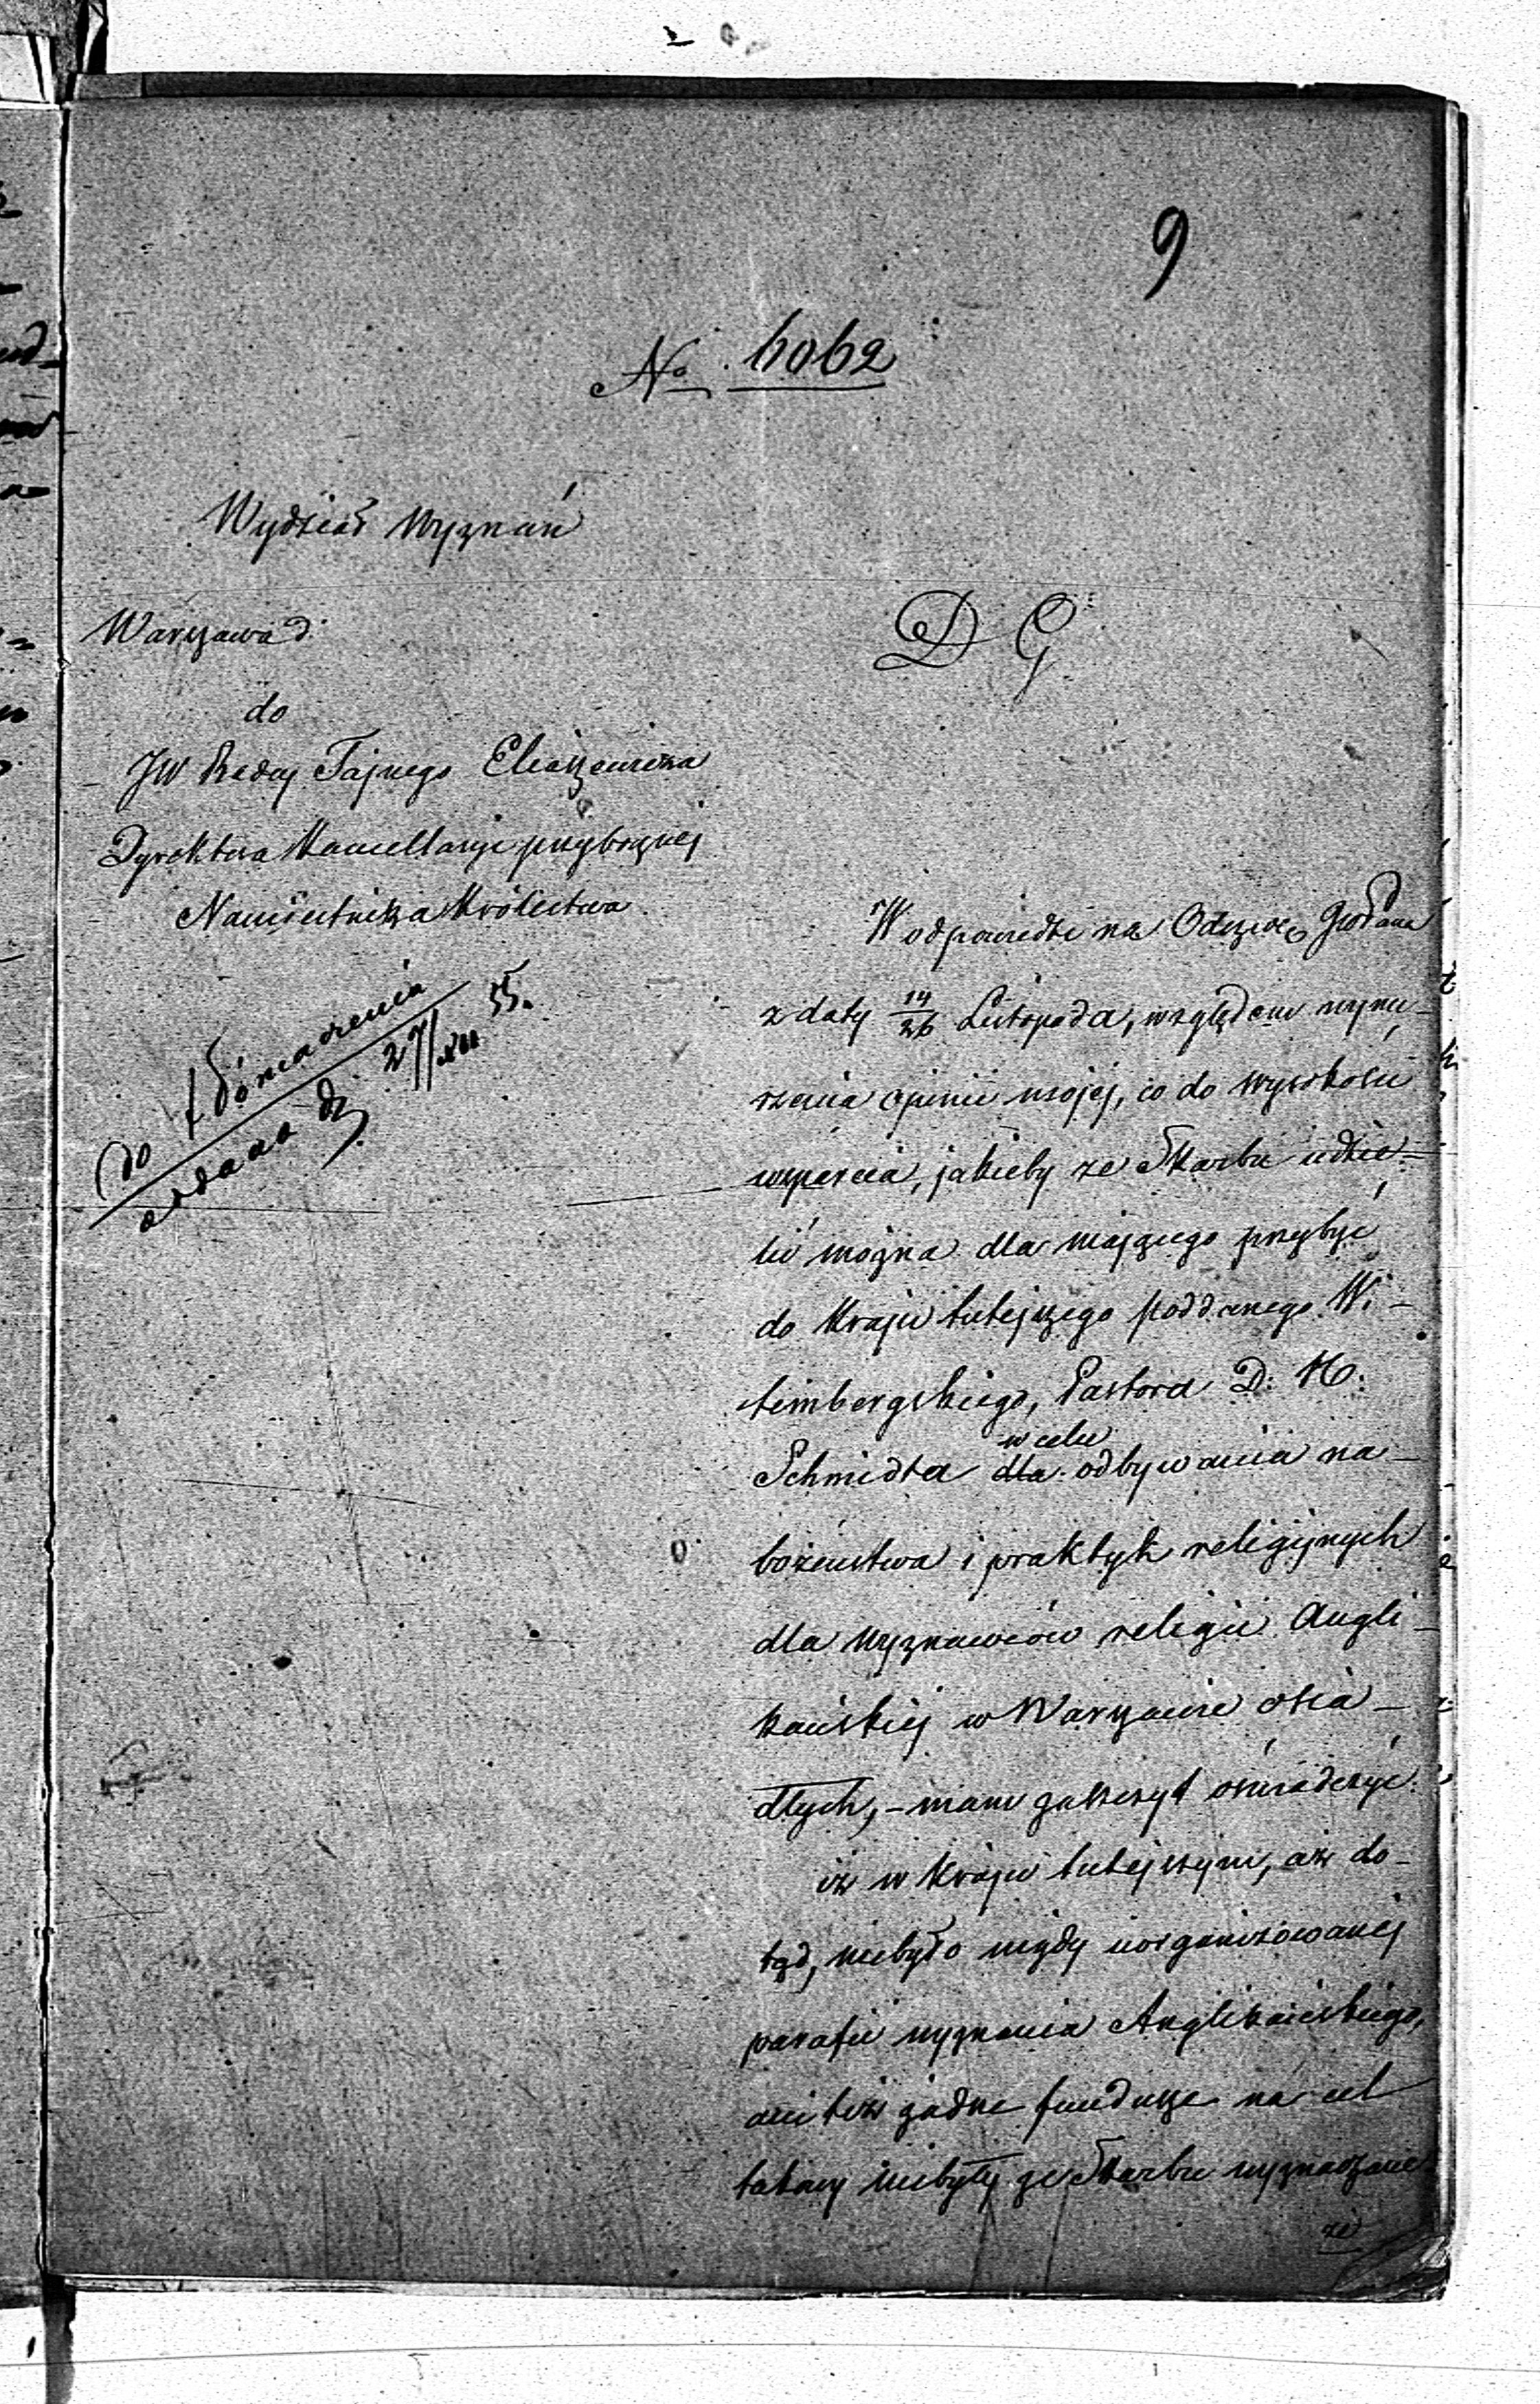 9
No. 6062
Wydział Wyznań
Warszawa d.
D G
do
JW Radcy Tajnego Eliaszewicza
Dyrektora Kancellaryi przybocznej
Namiestnika Królestwa
do tłómaczenia
oddano dj 27/XII 55.
W odpowiedzi na Odezwę
z daty 14/26 Listopada, względem wynu-
rzenia opinii mojej, co do wysokości
wsparcia, jakieby ze Skarbu udzie-
lić można dla mającego przybyć
do Kraju tutejszego poddanego Wi-
tembergskiego, Pastora D. H.
w celu
Schmidta dla odbywania na-
bożeństwa i praktyk religijnych
dla wyznawców religii Angli-
kańskiej w Warszawie osia-
dłych, - mam zaszczyt oświadczyć
iż w Kraju tutejszym, aż do-
tąd, niebyło nigdy uorganizowanej
parafii wyznania Anglikańskiego,
ani też żadne fundusze na cel
takowy niebyły ze Skarbu wyznaczane
ze